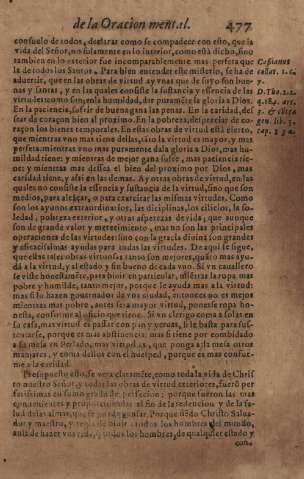 de la Oracion ment.l. 477
consuelo de todos, declaras como se compadece con esto, que la
vida del Señor, no solamente en lo interior, como està dicho, sino
tambien en lo exterior fue incomparablemente mas perfeta que
la de todos los Santos. Para bien entender este misterio, se ha de
advertir, que en las obras de virtud ay vnas que de suyo son bue-
nas y santas, y en las quales consiste la sustancia y essencia de las
virtudes: como son, en la humildad, dar puramẽte la gloria a Dios.
En la paciencia, sufrir de buena gana las penas. En la caridad, des-
sear de coraçon bien al proximo. En la pobreza, despreciar de co-
raçon los bienes temporales. En estas obras de virtud està cierto,
que mientras vno mas tiene dellas, sino la virtud es mayor, y mas
perfeta: mientras vno mas puramente da la gloria a Dios, mas hu-
mildad tiene: y mientras de mejor gana sufre, mas paciencia tie-
ne: y mientras mas dessea el bien del proximo por Dios, mas
caridad tiene, y assi en las demas. Ay otras obras de virtud, en las
quales no consiste la essencia y sustancia de la virtud, sino que son
medios, para alcançar, o para exercitar las mismas virtudes. Como
son los ayunos extraordinarios, las diciplinas, los cilicios, la so-
ledad, pobreza exterior, y otras asperezas de vida; que aunque
son de grande valor y merecimiento, mas no son las principales
operaciones de las virtudes: sino con la gracia diuina son grandes
y eficacissimas ayudas para todas las virtudes. De aqui se sigue,
que estas tales obras virtuosas tanto son mejores, quãto mas ayu-
dã a la virtud, y al estado y fin bueno de cada vno. Si vn cauallero
se viste honestamẽte, para biuir en particular,
pobre y humilde, tanto mejor, porque le ayuda mas a la virtud:
mas si lo hazen gouernador de vna ciudad, entonces no es mejor
mientras mas pobre, antes serà mayor virtud, ponerse ropa ho-
nesta, conforme al oficio que tiene. Si vn clerigo come a solas en
su casa, mas virtud es passar con pan y yeruas, si le basta para sus-
tentarse, porque es mas abstinencia: mas si tiene por combidado
a su mesa vn Perlado, mas virtud es, que ponga a la mesa otros
manjares, y coma dellos con el huesped, porque es mas confor-
me a la caridad.
Presupuesto esto, se vera claramẽte, como toda la vida de Chris
to nuestro Señor, y todas las obras de virtud exteriores, fuerõ per
fetissimas en sumo grado de perfecion: porque fueron las mas
conuenientes y proporcionadas al fin de la redencion y de la sa-
lud de las almas, que se puede pensar. Porque siẽdo Christo Salua-
dor y maestro, y regla de biuir a todos los hombres del mundo,
auia de hazer vna vida, que todos los hombres, de qualquier estado y
con-
Casianus
collat. 1. c.
7.
D. Tho. 2. 2.
q. 184. art.